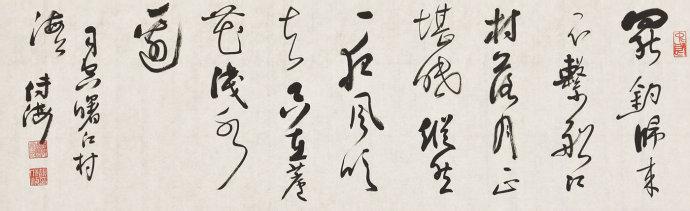 罷釣歸來
不繫船江
村落月正
堪眠縱然
一夜風吹
去只在蘆
花淺水
邊
司空曙江村